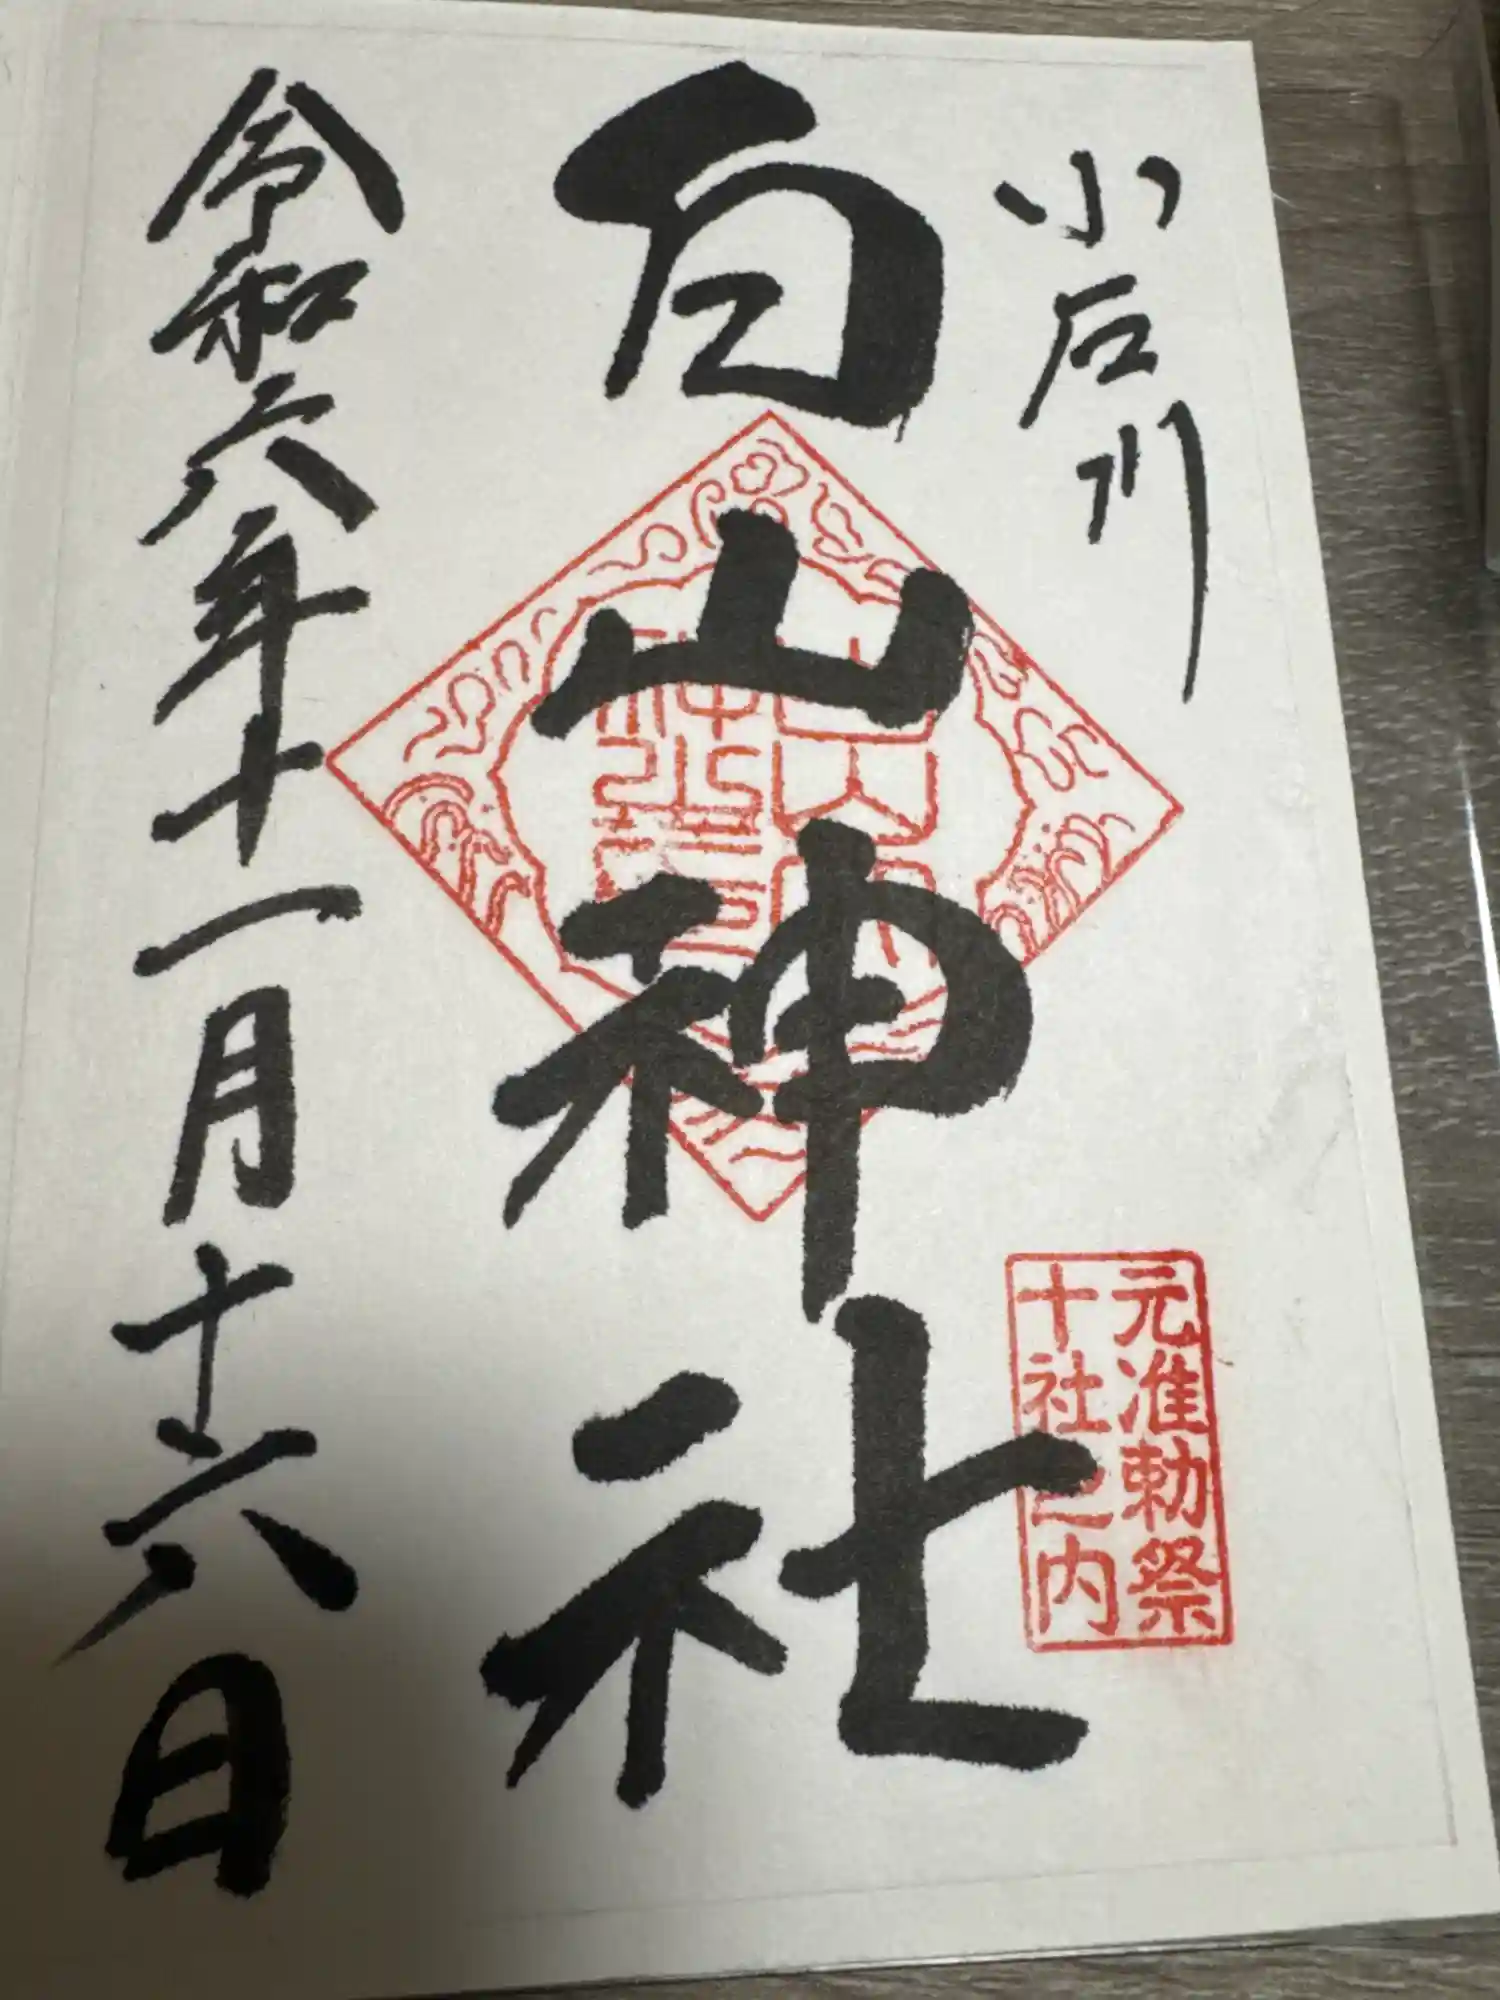 小石川
元准勅祭
十社之内
白山神社
令和六年十一月十六日